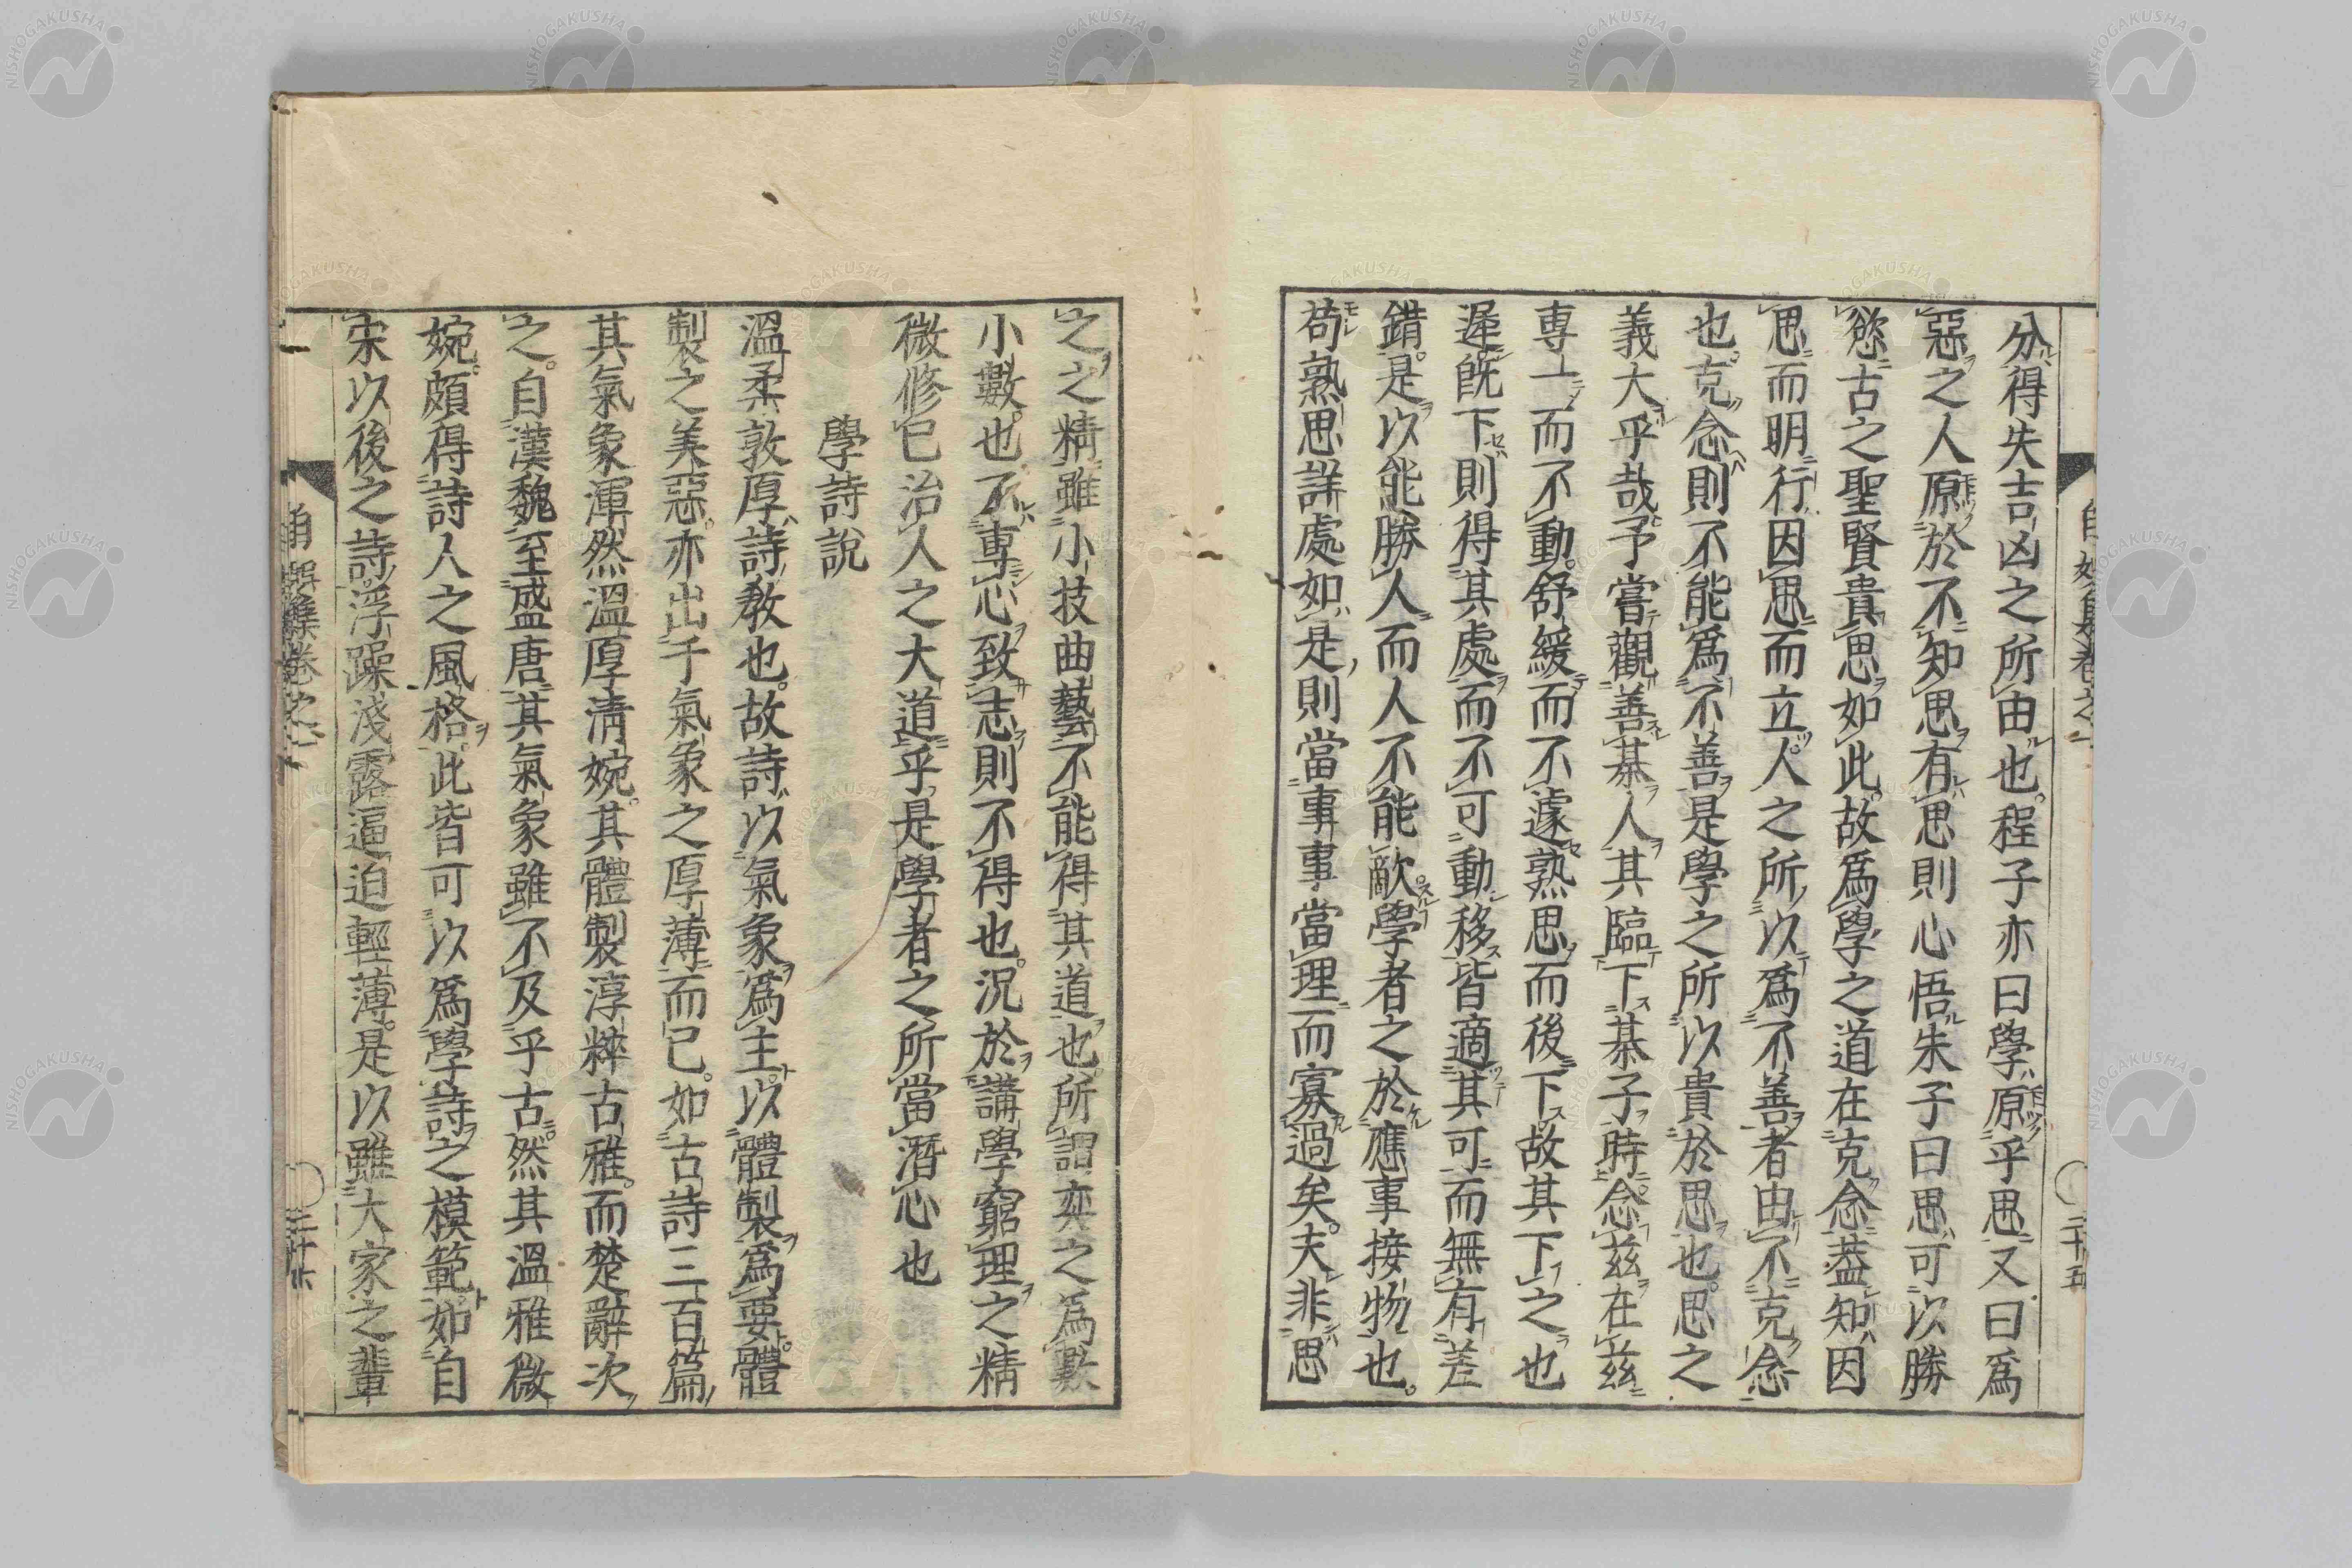 分得失吉凶之所由也程子亦曰學原乎思又曰爲
惡之人原於不知思有思則心悟朱子曰思可以勝
慾古之聖賢貴思如此故爲學之道在克念蓋知因
思而明行因思而立人之所以爲不善者由不克念
也克念則不能爲不善是學之所以貴於思也思之
義大乎哉予嘗觀善棊人其臨下棊子時念茲在茲
專一而不動舒緩而不遽熟思而後下故其下之也
遲既下則得其處而不可動移皆適其可而無有差
錯是以能勝人而人不能敵學者之於應事接物也
苟熟思詳處如是則當事事當理而寡過矣夫非思
之之精雖小技曲藝不能得其道也所謂奕之爲數
小數也不專心致志則不得也況於講學窮理之精
微修己治人之大道乎是學者之所當潛心也
學詩說
溫柔敦厚詩教也故詩以氣象爲主以體製爲要體
製之美惡亦出于氣象之厚薄而已如古詩三百篇
其氣象渾然溫厚淸婉其體製淳粹古雅而楚辭次
之自漢魏至盛唐其氣象雖不及乎古然其溫雅微
婉頗得詩人之風格此皆可以爲學詩之模範如自
宋以後之詩浮躁淺露逼迫輕薄是以雖大家之輩
自娛集卷之一
二十五
二十六
NISHOGAKUSHA